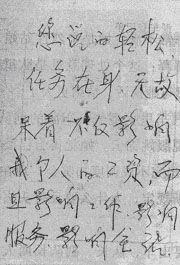 您说的轻松,
任务在身,无故
呆着不仅影响
我个人的工资,而
且影响工作,影响
服务,影响全